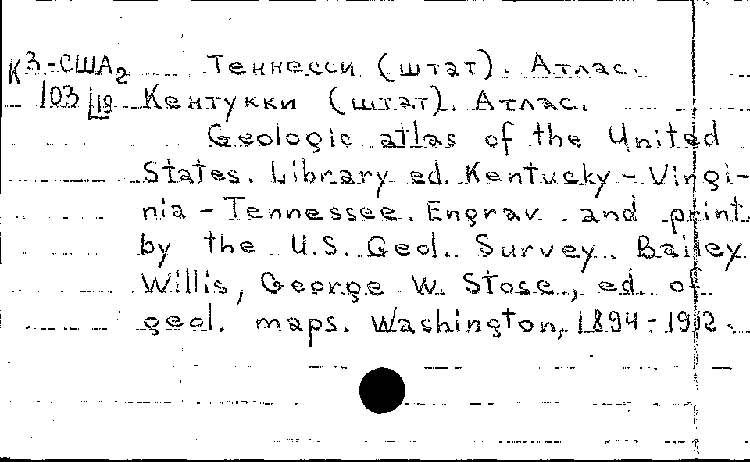 К 3-США2 Теннесси (штат). Атлас.
103 19 Кентукки (штат). Атлас.
Geologic atlas of the United
States. Library ed. Kentucky-Virgi-
nia - Tennessee. Engrav. and print.
by the U.S. Geol. Survey. Bailey
Willis, George W. Stose, ed. of
geol. maps. Washington, 1894-1902.